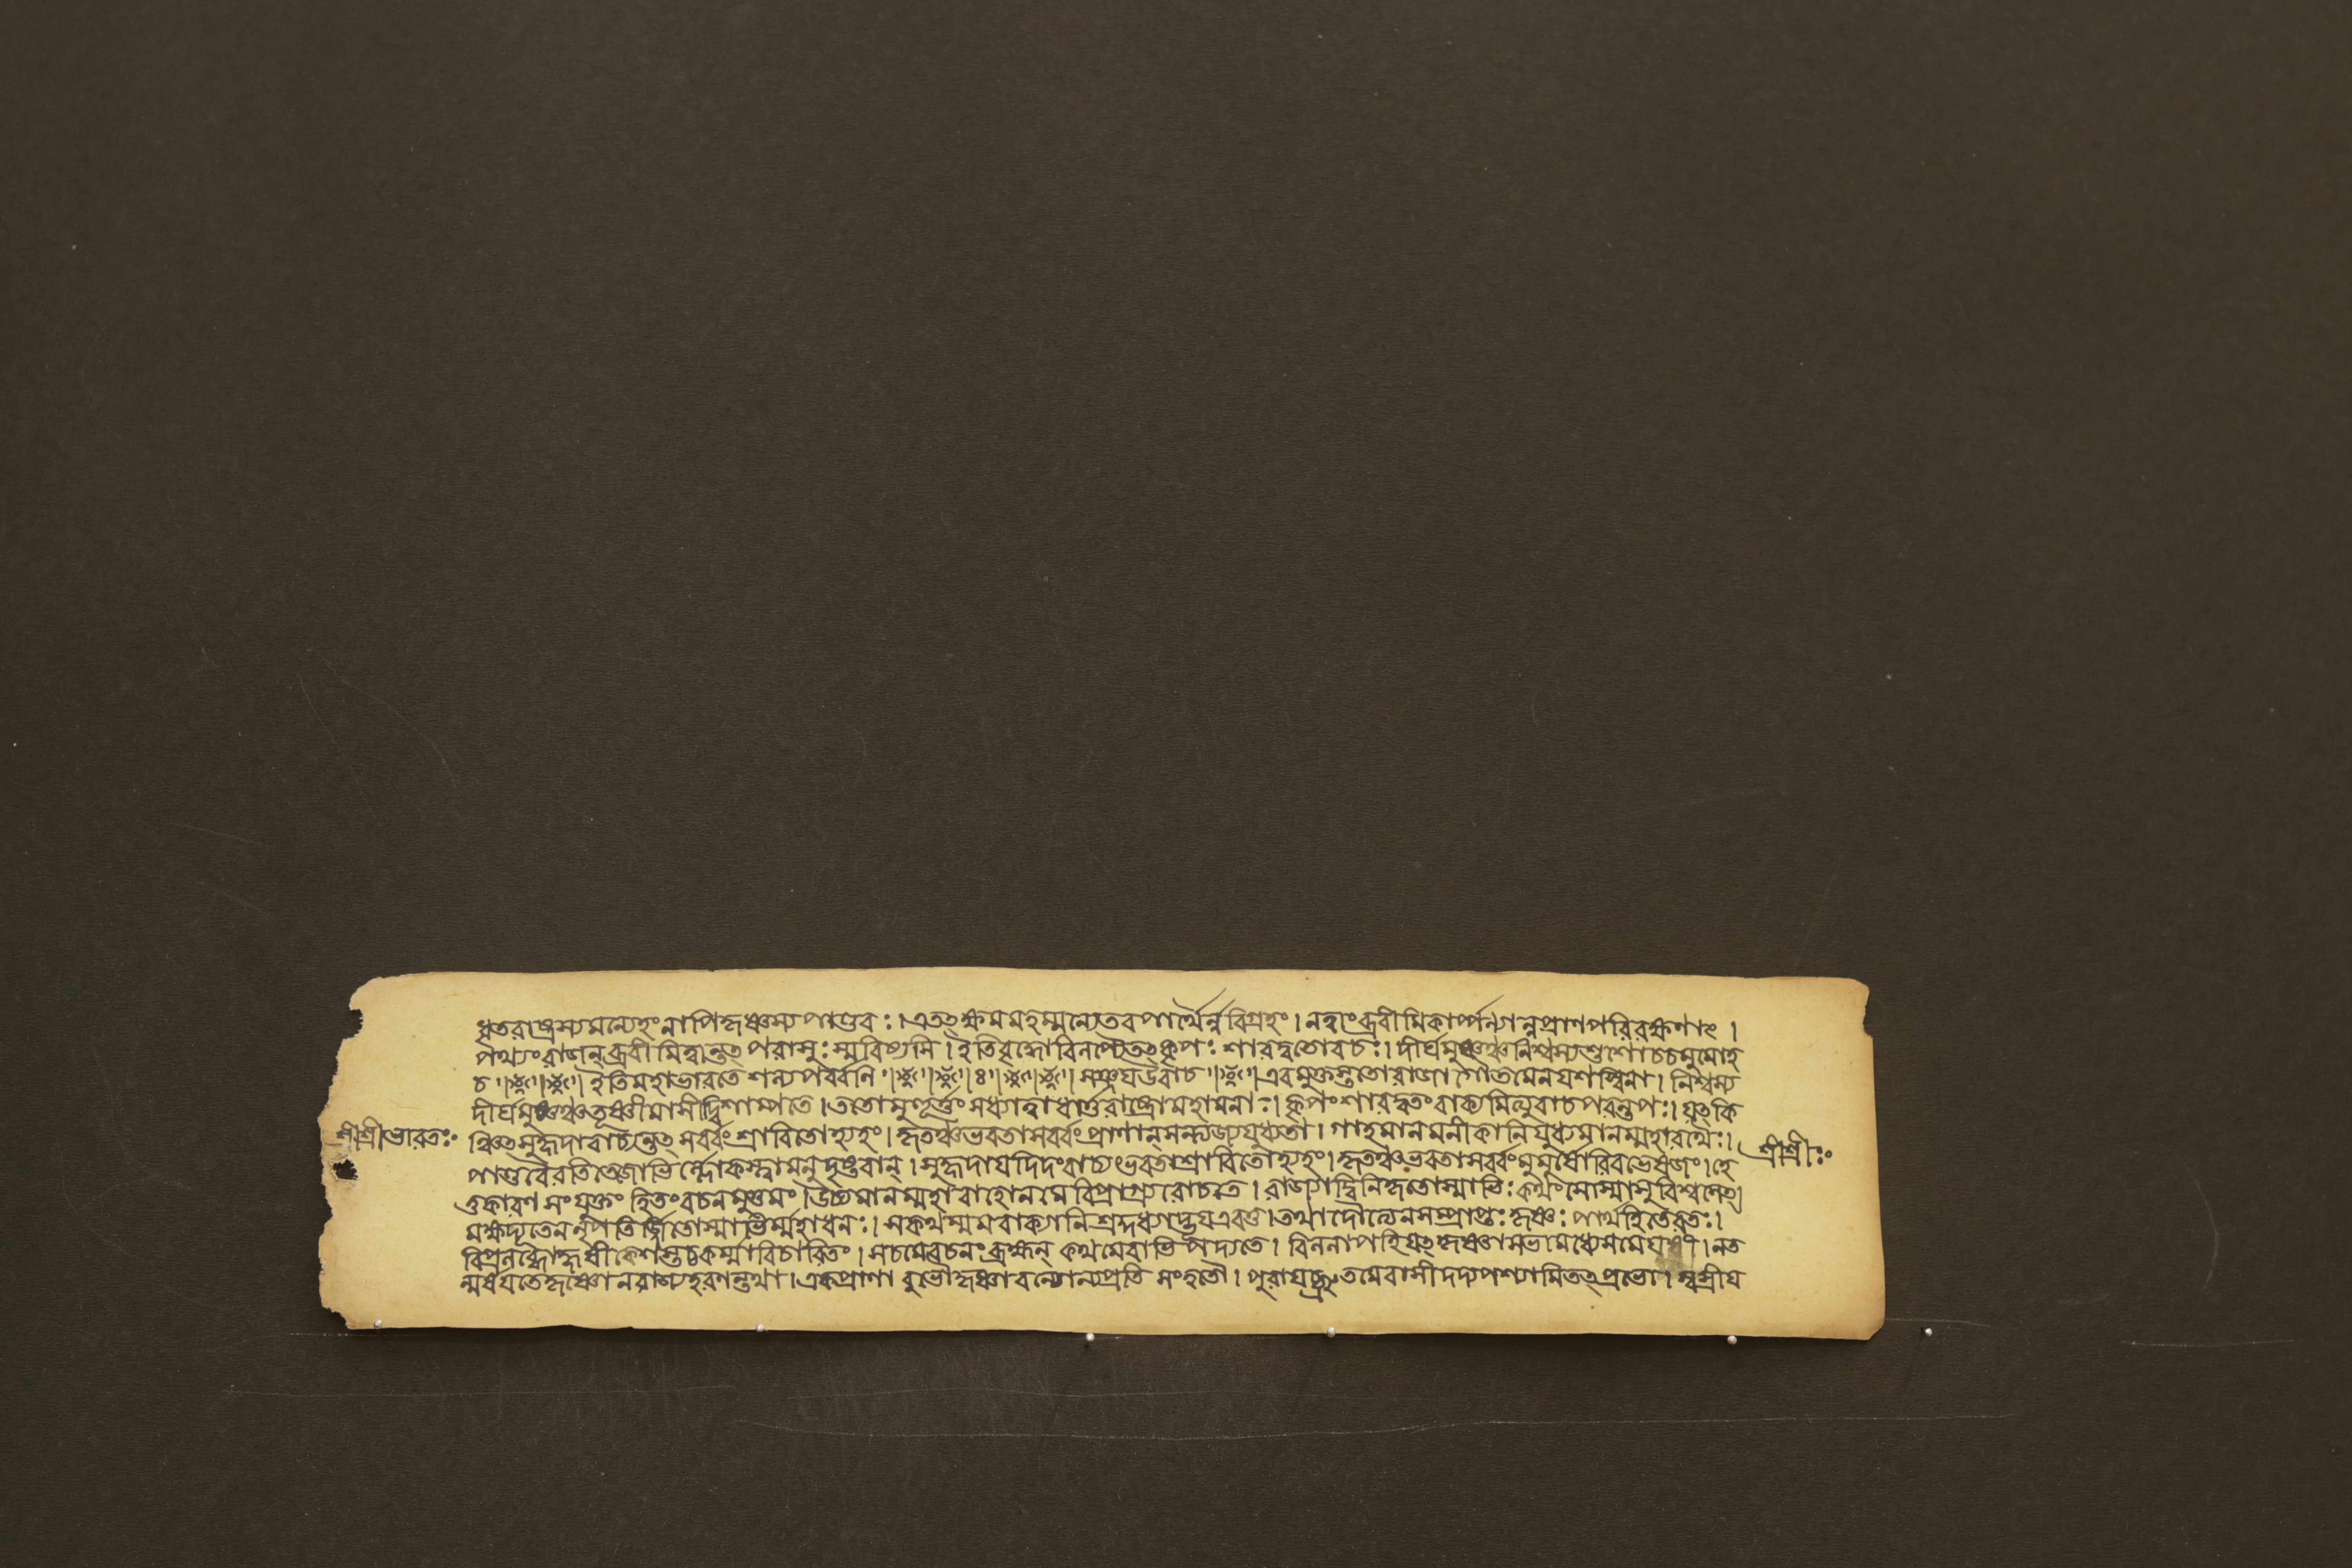 ধৃতরাষ্ট্রস্যমন্যেহংনাপিকৃষ্ণস্যপাণ্ডবঃ।এতত্ক্ষমমহম্মন্যেতবপার্থৈর্ন্নবিগ্রহং।নত্বাংব্রবীমিকার্পণ্যান্নপ্রাণপরিরক্ষণাৎ।
পথ্যংরাজন্ব্রবীমিত্বান্তত্পরাসুঃস্মরিষ্যসি।ইতিবৃদ্ধোবিলপ্যৈতত্কৃপঃশারদ্বতোবচঃ।দীর্ঘমুষ্ণঞ্চনিশ্বস্যশুশোচচমুমোহ
চ ইতিমহাভারতেশল্যপর্ব্বনি ॥৪॥ সঞ্জয়উবাচ এবমুক্তস্ততোরাজাগৌতমেনযশস্বিনা।নিশ্বস্য
দীর্ঘমুষ্ণঞ্চতূষ্ণীমাসীদ্বিশাম্পতে।ততোমুহূর্ত্তংসধ্যাত্বাধার্ত্তরাষ্ট্রোমহামনাঃ।কৃপংশারদ্বতংবাক্যমিত্যুবাচপরন্তপঃ।যত্কি
শ্রীশ্রীভারতঃ ঞ্চিত্সুহৃদাবাচ্যন্তত্সর্ব্বংশ্রাবিতোহ্যহং।কৃতঞ্চভবতাসর্ব্বংপ্রাণান্সন্ত্যজ্যযুধ্যতা।গাহমানমনীকানিযুধ্যমানম্মহারথৈঃ। শ্রীশ্রীঃ
পাণ্ডবৈরতিতেজোভির্ল্লোকস্ত্বামনুদৃষ্টবান্।সুহৃদাযদিদংবাচ্যংভবতাশ্রাবিতোহ্যহং।কৃতঞ্চভবতাসর্ব্বংমুমূর্ষোরিবভেষজং।হে
তুকারণসংযুক্তংহিতংবচনমুত্তমং।উচ্যমানম্মহাবাহোনমেবিপ্রাগ্র্যরোচতে।রাজ্যাদ্বিনিকৃতোস্মাভিঃকথংসোস্মাসুবিশ্বসেত্।
মক্ষদ্যূতেননৃপতির্জ্জিতোস্মাভির্ম্মহাধনঃ।সকথম্মমবাক্যানিশ্রদ্দধ্যাদ্ভূয়এবতু।তথাদৌত্যেনসম্প্রাপ্তঃকৃষ্ণঃপার্থহিতেরতঃ।
বিপ্রলব্ধোহৃষীকেশস্তচ্চকর্ম্মাবিচারিতং।সচমেবচনংব্রহ্মন্কথমেবাভিপদ্যতে।বিললাপহিযত্কৃষ্ণাসভামধ্যেসমেযুষী।নত
ন্মর্ষয়তেকৃষ্ণোনরাজ্যহরণন্তথা।একপ্রাণাবুভৌকৃষ্ণাবন্যোন্যপ্রতিসংহতৌ।পুরাযচ্ছ্রুতমেবাসীদদ্যপশ্যামিতত্প্রভো।স্বস্রীয়